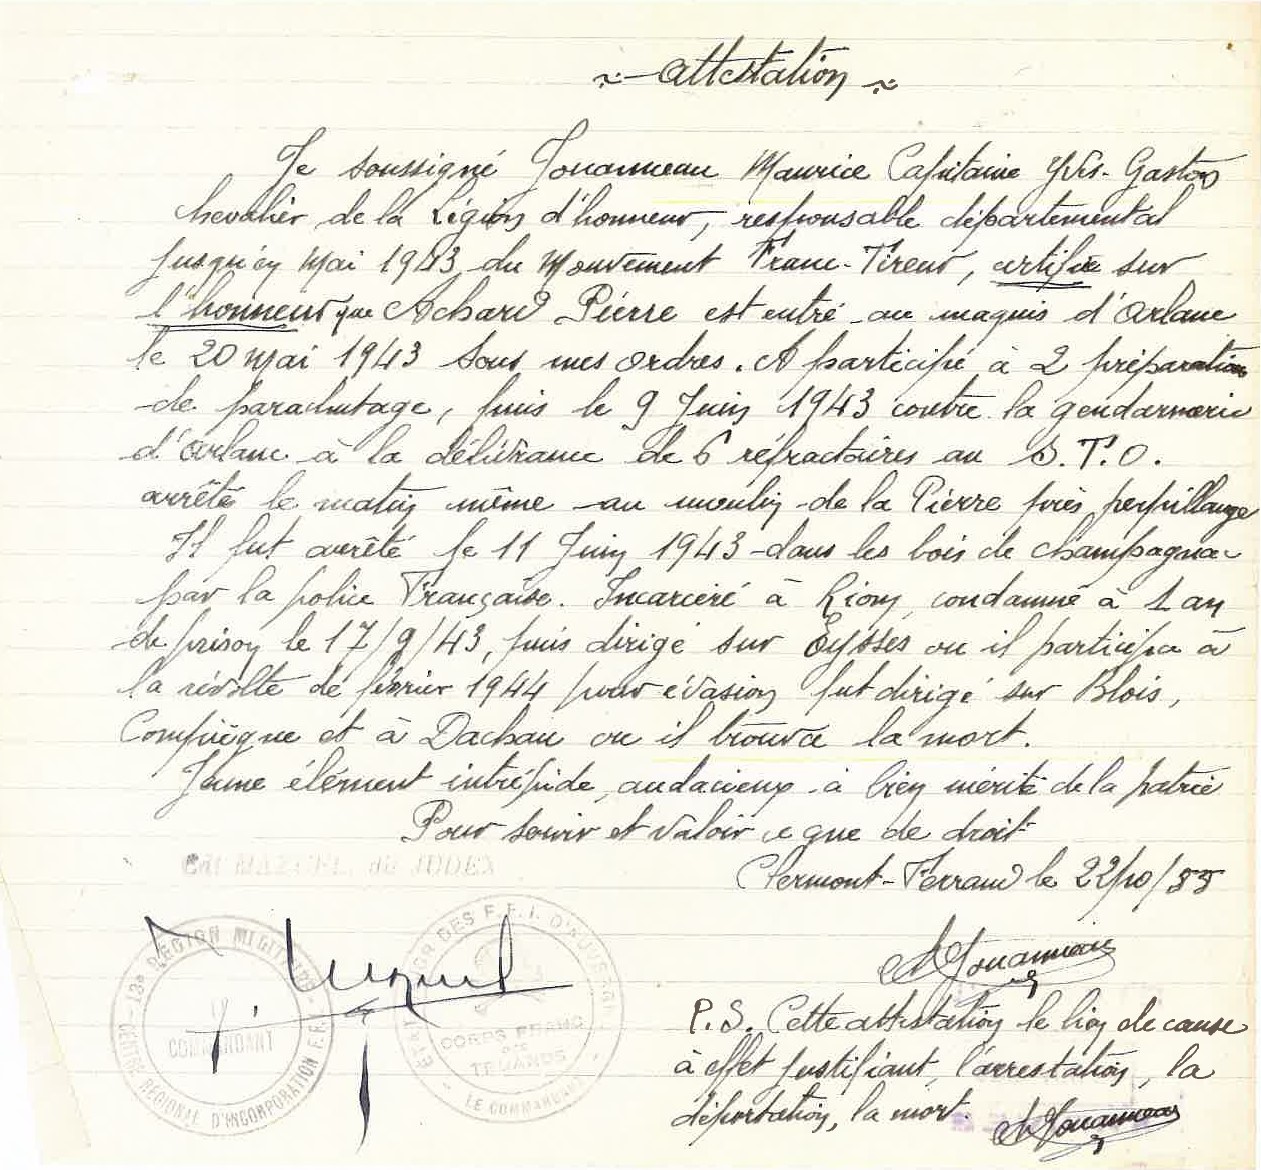 ~ Attestation ~
Je soussigné Jouanneau Maurice Capitaine Yves-Gaston
Chevalier de la Légion d'honneur, responsable départemental
jusqu'en Mai 1943 du Mouvement Franc-Tireur, certifie sur
l'honneur que Achard Pierre est entré au maquis d'Arlanc
le 20 Mai 1943 sous mes ordres. A participé à 2 préparations
de parachutage, puis le 9 Juin 1943 contre la gendarmerie
d'Arlanc à la délivrance de 6 réfractaires au S.T.O.
arrêtés le matin même au moulin de la Pierre près
Il fut arrêté le 11 Juin 1943 dans les bois de Champagnac
par la police Française. Incarcéré à Riom, condamné à 1 an
de prison le 17/9/43, puis dirigé sur Eysses ou il participa à
la révolte de février 1944 pour évasion fut dirigé sur Blois,
Compiègne et à Dachau ou il trouva la mort.
Jeune élément intrépide, audacieux a bien mérité de la patrie
Pour servir et valoir ce que de droit
Clermont-Ferrand le 22/10/53
MJouanneau
P.S. Cette attestation le lien de cause
à effet justifiant, l'arrestation, la
déportation, la mort.
MJouanneau
13e REGION MILITAIRE
CENTRE REGIONAL D'INCORPORATION F.F.I.
LE
COMMANDANT
DES F.F.I. D'AUVERGNE
CORPS FRANC
DES
TRUANDS
LE COMMANDANT